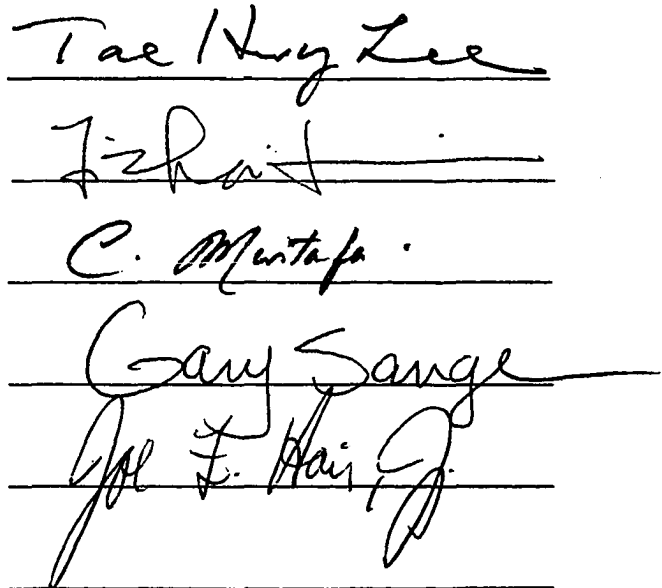 Tae Hwy Lee
C. Mustafa.
Gary Sange
Joe F. Hair, Jr.